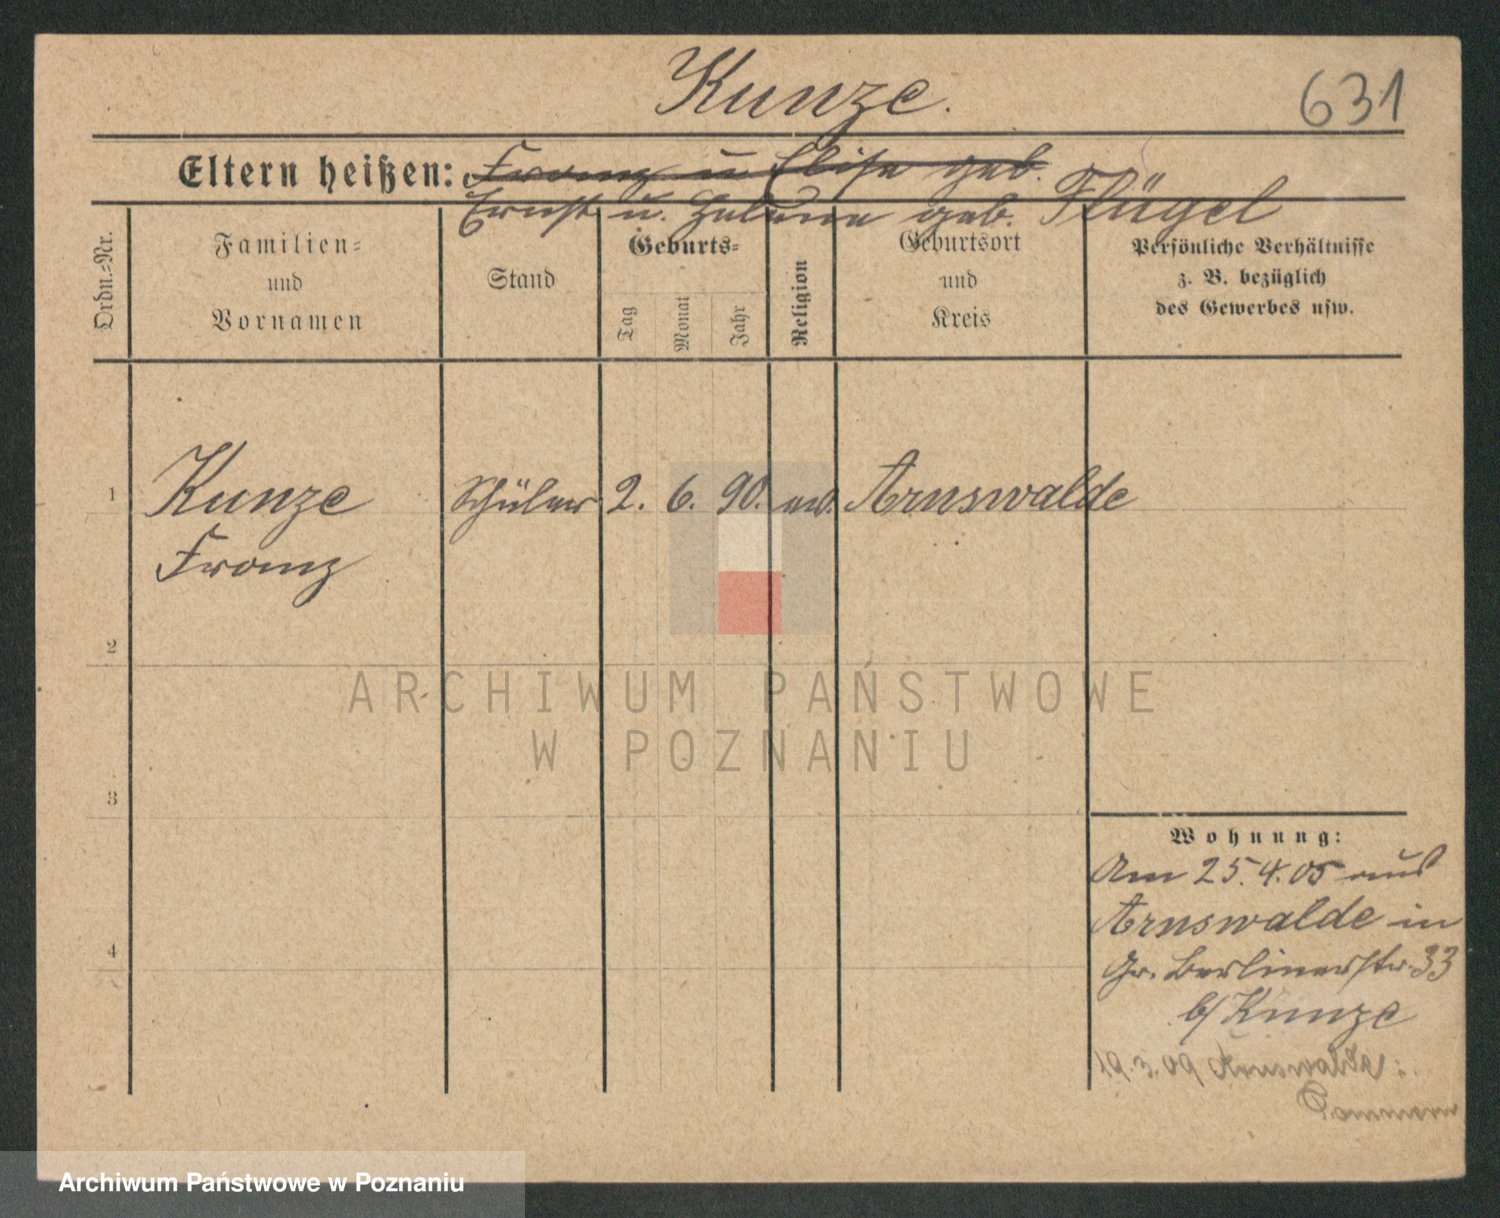 Kunze.
631
Eltern heißen: Franz u Elise geb.
Ernst u. Helene geb. Flügel
Ordn.=Nr.
Familien=
und
Vornamen
Stand
Geburts=
Tag
Monat
Jahr
Religion
Geburtsort
und
Kreis
Persönliche Verhältnisse
z. B. bezüglich
des Gewerbes usw.
1
Kunze Schüler 2. 6. 90. ev. Arnswalde
Franz
2
ARCHIWUM PAŃSTWOWE
W POZNANIU
3
Wohnung:
Am 25.4.05 aus
Arnswalde in
Gr. Berlinerstr. 33
b/ Kunze
4
19.3.09 Arnswalde i.
Pommern
Archiwum Państwowe w Poznaniu